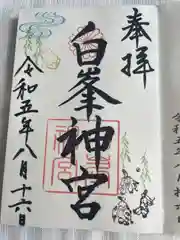 奉拝
白峯神宮
令和五年八月十六日